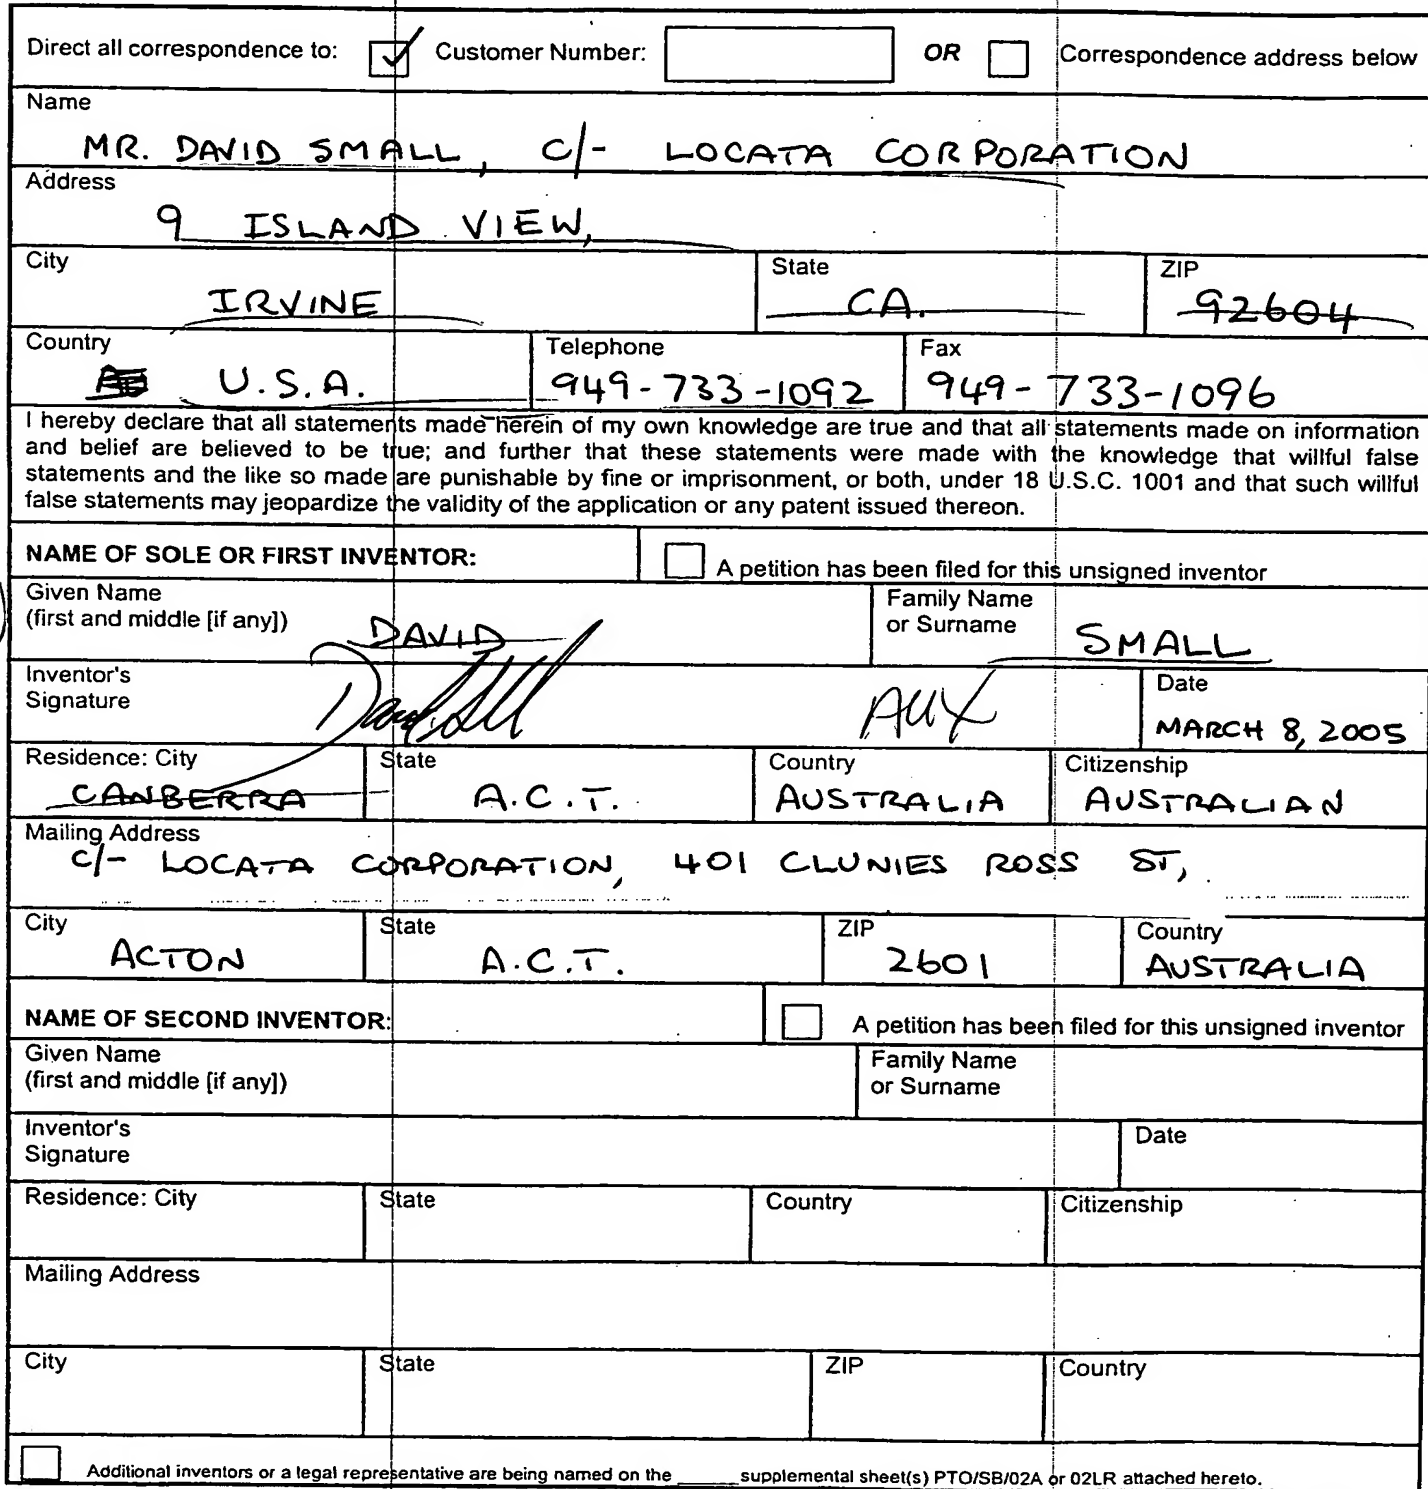 Direct all correspondence to: Customer Number: OR Correspondence address below
Name
MR. DAVID SMALL, C/- LOCATA CORPORATION
Address
9 ISLAND VIEW,
City State ZIP
IRVINE CA. 92604
Country Telephone Fax
U.S.A. 949-733-1092 949-733-1096
I hereby declare that all statements made herein of my own knowledge are true and that all statements made on information
and belief are believed to be true; and further that these statements were made with the knowledge that willful false
statements and the like so made are punishable by fine or imprisonment, or both, under 18 U.S.C. 1001 and that such willful
false statements may jeopardize the validity of the application or any patent issued thereon.
NAME OF SOLE OR FIRST INVENTOR: A petition has been filed for this unsigned inventor
Given Name Family Name
(first and middle [if any]) or Surname
DAVID SMALL
Inventor's Date
Signature AUX MARCH 8, 2005
Residence: City State Country Citizenship
CANBERRA A.C.T. AUSTRALIA AUSTRALIAN
Mailing Address
C/- LOCATA CORPORATION, 401 CLUNIES ROSS ST,
City State ZIP Country
ACTON A.C.T. 2601 AUSTRALIA
NAME OF SECOND INVENTOR: A petition has been filed for this unsigned inventor
Given Name Family Name
(first and middle [if any]) or Surname
Inventor's Date
Signature
Residence: City State Country Citizenship
Mailing Address
City State ZIP Country
Additional inventors or a legal representative are being named on the _____ supplemental sheet(s) PTO/SB/02A or 02LR attached hereto.